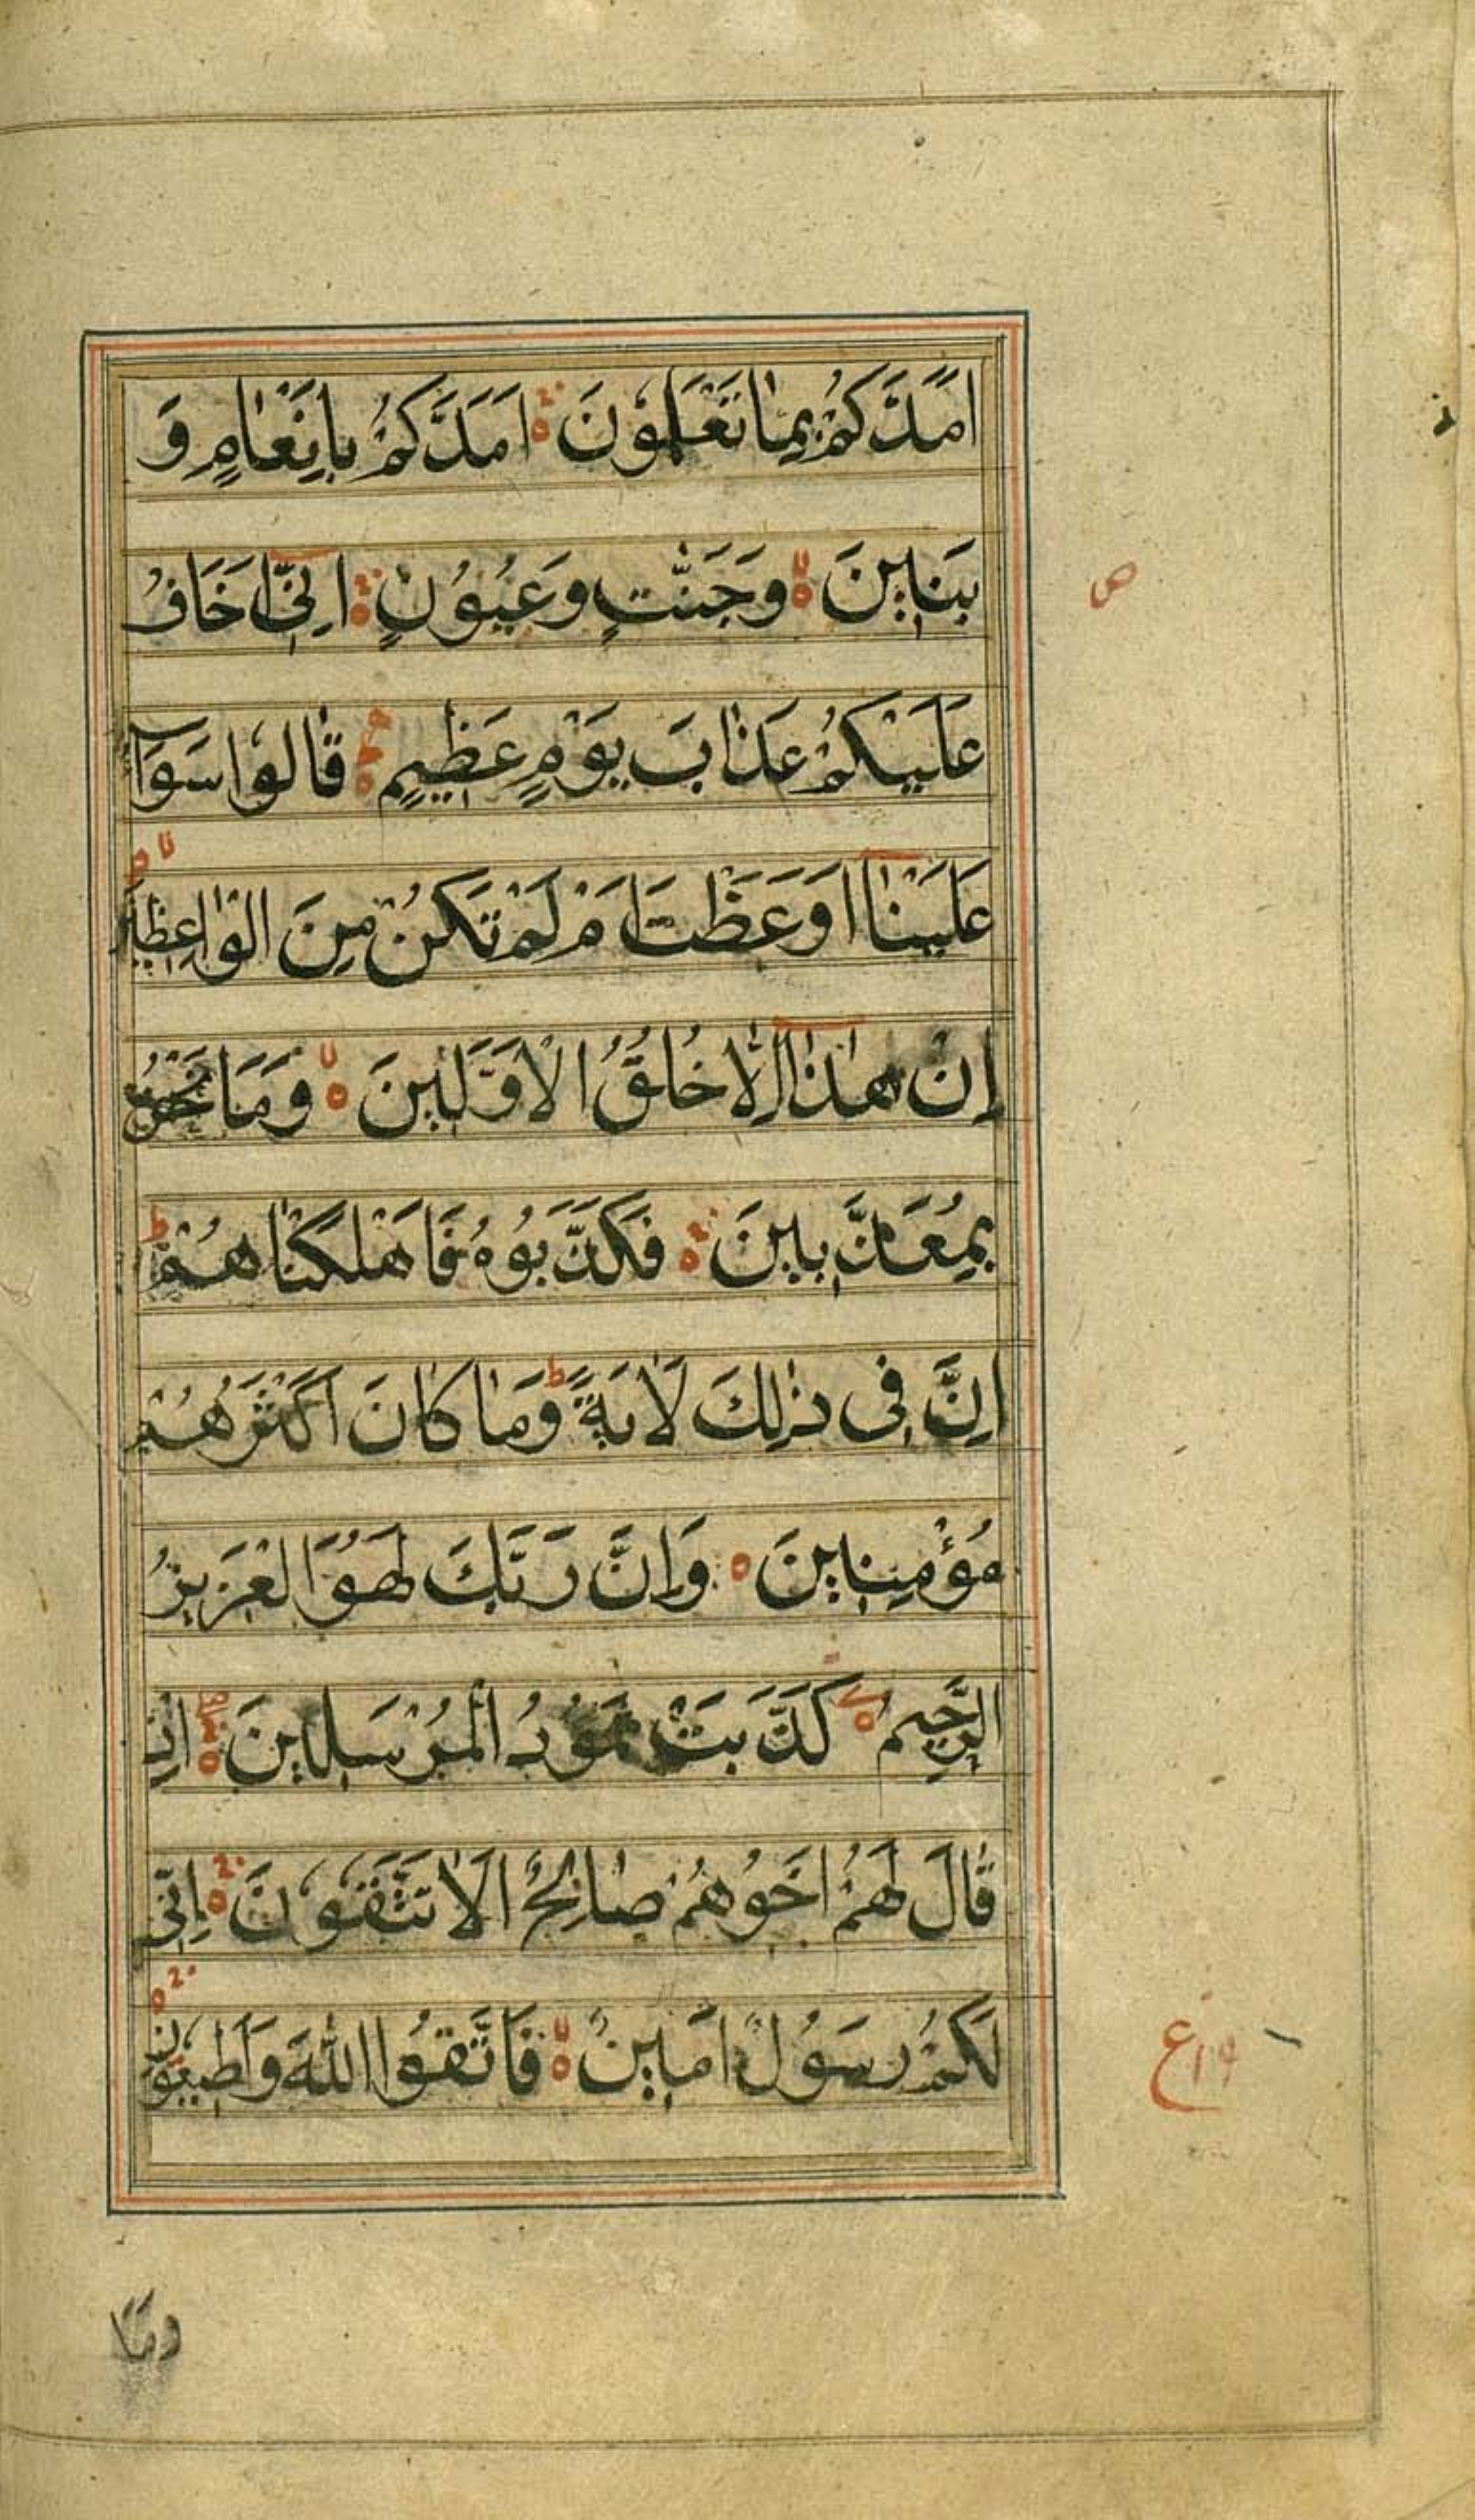 اَمَدَّكُمْ بِمَا تَعْلَمُوْنَ ۝ اَمَدَّكُمْ بِاَنْعَامٍ وَّ
بَنِيْنَ ۝ وَجَنّٰتٍ وَعُيُوْنٍ ۝ اِنِّيْٓ اَخَافُ
ص
عَلَيْكُمْ عَذَابَ يَوْمٍ عَظِيْمٍ ۝ قَالُوْا سَوَآءٌ
عَلَيْنَآ اَوَعَظْتَ اَمْ لَمْ تَكُنْ مِنَ الْوَاعِظِيْنَ ۝
اِنْ هٰذَآ اِلَّا خُلُقُ الْاَوَّلِيْنَ ۝ وَمَا نَحْنُ
بِمُعَذَّبِيْنَ ۝ فَكَذَّبُوْهُ فَاَهْلَكْنَاهُمْ ط
اِنَّ فِى ذٰلِكَ لَاٰيَةً ط وَمَا كَانَ اَكْثَرُهُمْ
مُؤْمِنِيْنَ ۝ وَاِنَّ رَبَّكَ لَهُوَ الْعَزِيْزُ
الرَّحِيْمُ ۝ كَذَّبَتْ ثَمُوْدُ الْمُرْسَلِيْنَ ۝ اِذْ
قَالَ لَهُمْ اَخُوْهُمْ صَالِحٌ اَلَا تَتَّقُوْنَ ۝ اِنِّى
لَكُمْ رَسُوْلٌ اَمِيْنٌ ۝ فَاتَّقُوا اللّٰهَ وَاَطِيْعُوْنِ ۝
ع
وَمَا